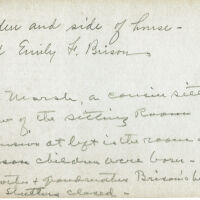 den and side of house -
d Emily F. Brison
Marsh, a cousin sitt
w of the sitting Room
at left is the room
son children were born -
& grandmother Brison's b
Shutters closed -